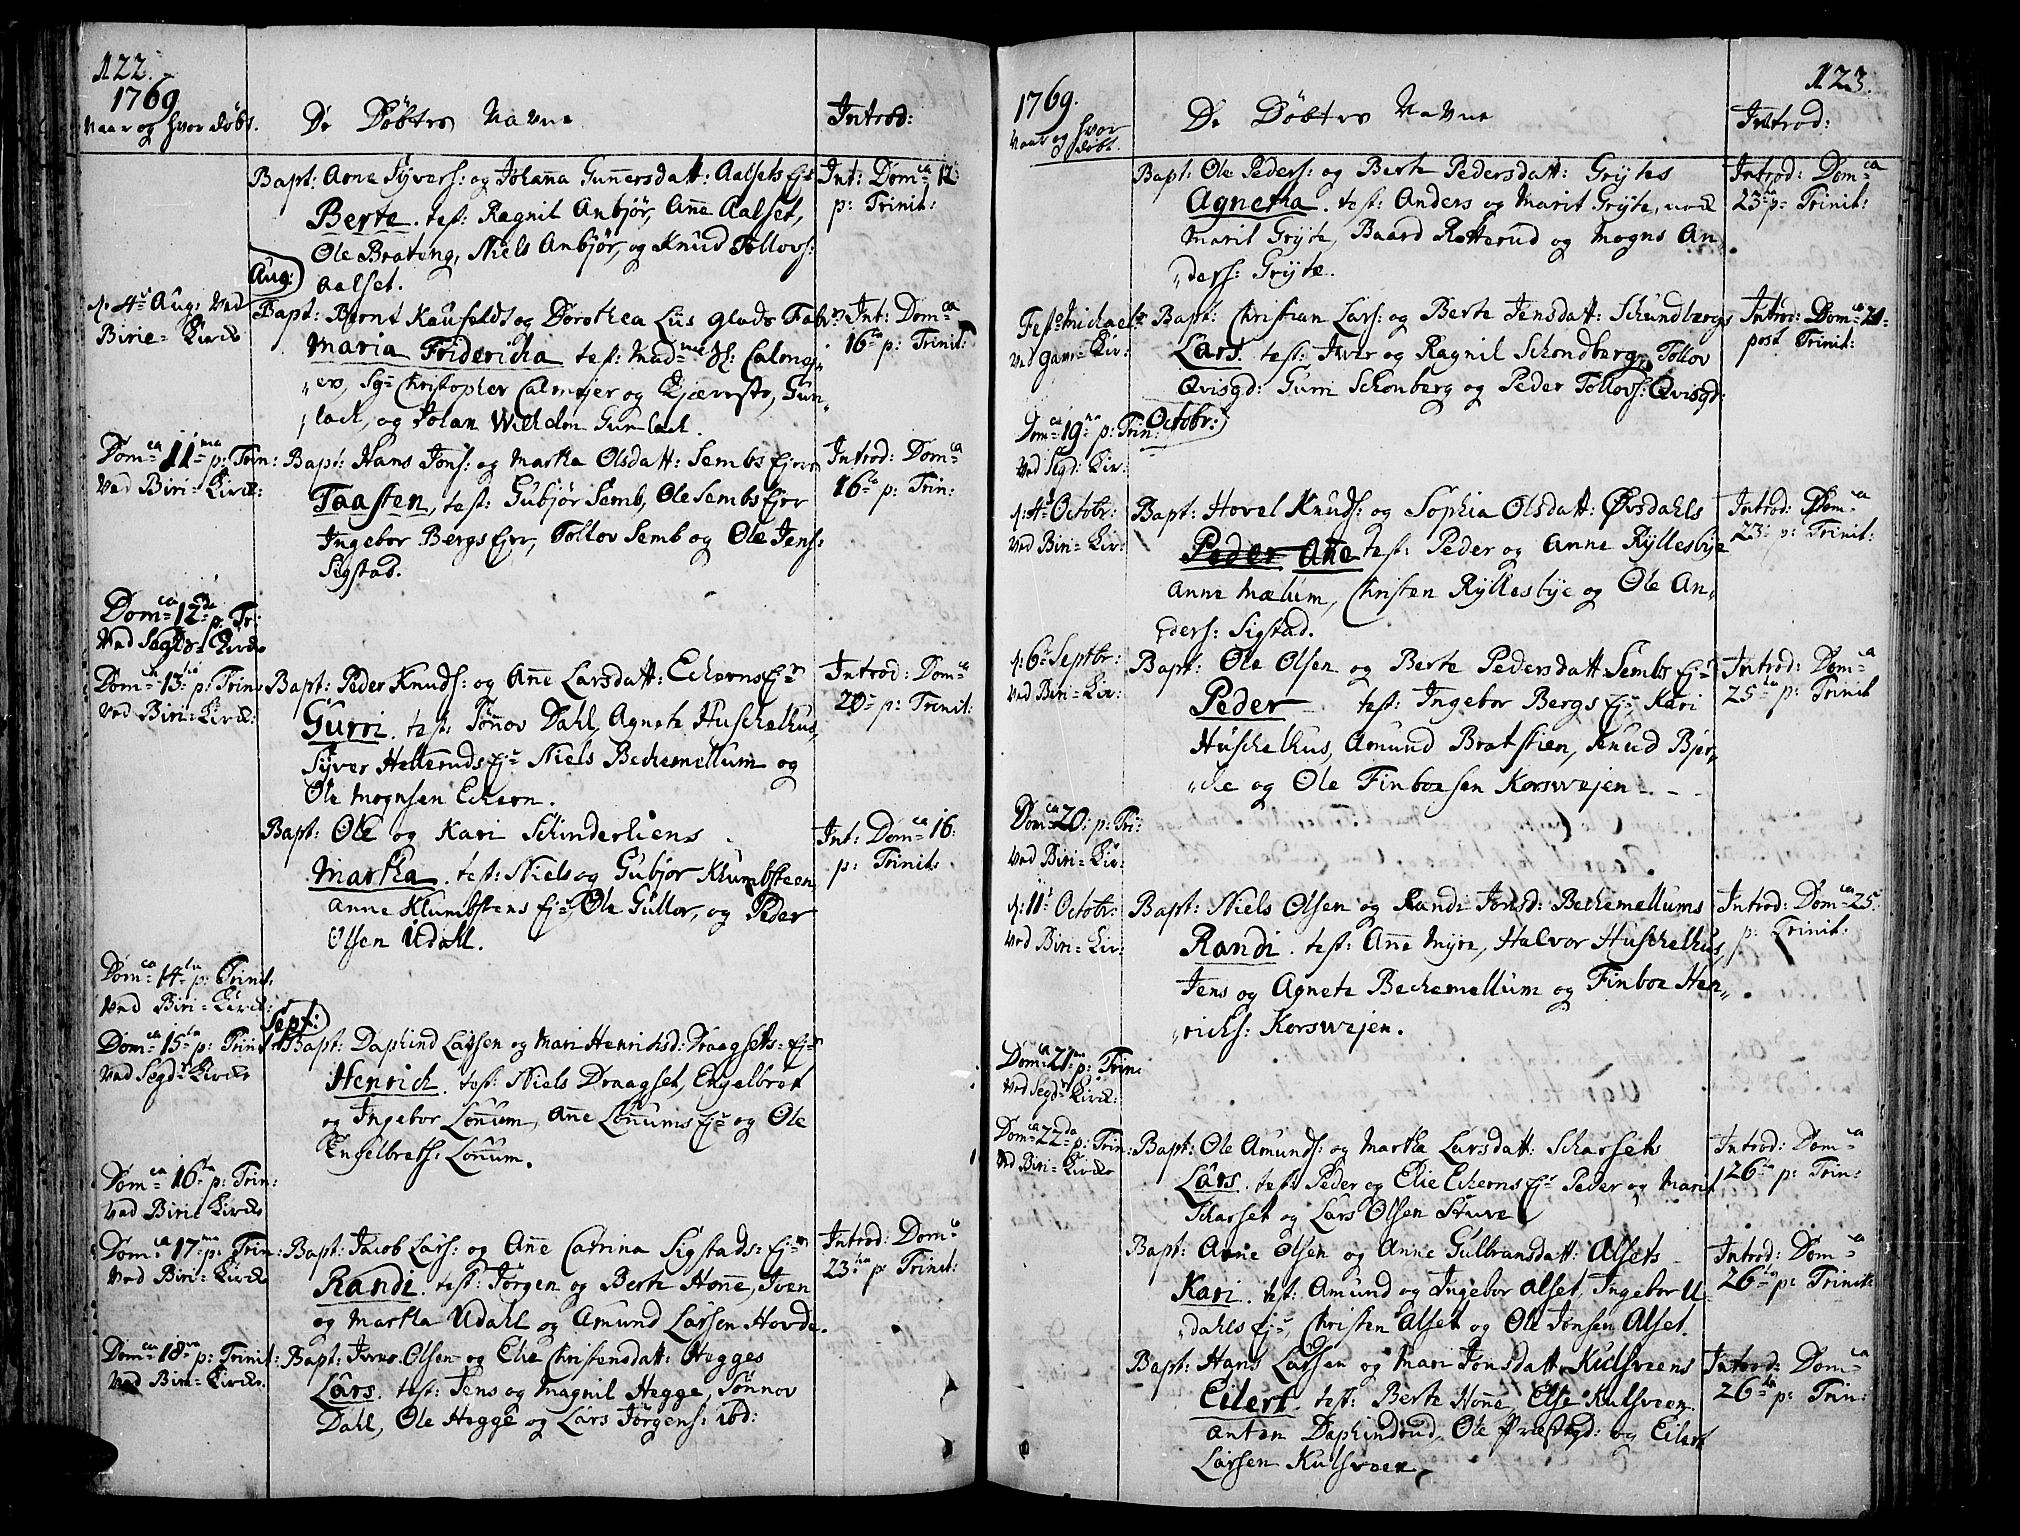 122.
1769
Naar og hvor døbt.
De Døbtes Navne
Introd:
Bapt: Arne Syvers: og Johaña Guñersdatt: Aalsets Ejr
Berte. test: Ragnil Anbjør, Añe Aalset,
Ole Brateng, Niels Anbjør, og Knud Tollovs:
Aalset.
Int: Domca 12:
p: Trinit:
Aug:
d: 4de Aug: Ved
Birie-Kirck
Bapt: Bernt Kaufeldt og Dorothea Lüs glads Fabr:
Maria Fridericha test: Madme Sl: Calmej„
„er, Sgr Christopher Calmejer og Kjæreste, Gun„
„lach, og Johan Wilhelm Gunlach.
Int: Domca
16ta p: Trinit:
Domca 11ma p: Trin:
Ved Biri-Kirck:
Bapt: Hans Jons: og Martha Olsdatt: Sembs Ejers
Taasten, test: Gubjør Semb, Ole Sembs Ejer
Ingebor Bergs Ejer, Tollov Semb og Ole Jens:
Sigstad.
Introd: Domca
16ta p: Trin:
Domca 12da p: Tr:
Ved Segds Kircke
Domca 13tia p: Trin:
Ved Biri-Kirck:
Bapt: Peder Knuds: og Añe Larsdatt: Eckerns Ejr
Gurri. test: Søñov Dahl, Agnete Huschelhus,
Syver Hellerud s Ejr Niels Beckemellum og
Ole Mognsen Eckern.
Introd: Domca
20- p: Trinit:
Bapt: Ole og Kari Schinderliens
Martha. test: Niels og Gubjør Klumbsteen,
Anne Klumbstens Ejr, Ole Gullor, og Peder
Olsen Udahl.
Int: Domca 16:
p: Trinit:
Domca 14ta p: Trinit:
Ved Biri-Kirck:
Sept:
Domca 15ta p: Trinit:
Ved Segds Kircke
Bapt: Daphind Larsen og Mari Henrichsd: Draagsets: Ejr
Henrich. test: Niels Draagset, Engelbret
og Ingebor Loñum, Añe Loñums Ejr og Ole
Engelbrets: Loñum.
Domca 16ta p: Trin:
Ved Biri-Kircke
Domca 17ma p: Trin:
Ved Biri-Kircke
Bapt: Jacob Lars: og Añe Catrina Sigstads: Ejr
Randi. test: Jørgen og Berte Hoñe, Iven
og Martha Udahl og Amund Larsen Hovde.
Introd: Domca
23tia p: Trinit:
Domca 18va p: Trinit:
Ved Biri-Kircke.
Bapt: Iver Olsen og Elie Christensdatt: Hegges
Lars. test: Jens og Magnil Hegge, Sønnov
Dahl, Ole Hegge og Lars Jørgens: ibd:
123.
1769.
Naar og hvor
døbt.
De Døbtes Navne
Introd:
Bapt: Ole Peders: og Berte Pedersdatt: Grÿtes
Agnetha. test: Anders og Marit Grÿte,
Marit Grÿte, Baard Rotterud og Mogns An„
„ders: Grÿte.
Introd: Domca
23tia p: Trinit:
Fest: Michaelis
ved gams Kir:
Bapt: Christian Lars: og Berte Jensdatt: Schundbergs
Lars. test: Iver og Ragnil Schondberg, Tollov
Qvisgd: Gurri Schonberg og Peder Tollovs: Qvisgd:
Introd: Domca 21-
post Trinit:
Domca 19na p: Trin:
Ved Segd: Kir:
Octobr:
d: 4de Octobr:
Ved Biri-Kir:
Bapt: Hovel Knuds: og Sophia Olsdatt: Øvsdahls
Peder Añe test: Peder og Anne Ryllesbye
Anne Mælum, Christen Ryllesbye og Ole An„
„ders: Sigstad.
Introd: Domca
23- p: Trinit:
d: 6te Septbr:
Ved Biri-Kir:
Bapt: Ole Olsen og Berte Pedersdatt: Sembs Ejr
Peder test: Ingebor Bergs Ejr, Kari
Huschelhus, Amund Bratstien, Knud Bjer„
„che og Ole Finboesen Korsvejen - - -
Introd: Domca
25ta p: Trinit
Domca 20: p: Tri:
Ved Biri-Kir:
d: 11te Octobr:
Ved Biri-Kir:
Bapt: Niels Olsen og Randi Jonsd: Beckemellums
Randi. test: Añe Myre, Halvor Huschelhus,
Jens og Agnete Beckemellum og Finboe Hen„
„richs: Korsvejen.
Introd: Domca 25.
p: Trinit:
Domca 21ma p: Trin:
Ved Segds Kirck:
Domca 22da p: Trin:
Ved Biri-Kircke
Bapt: Ole Amunds: og Martha Larsdatt: Scharsets
Lars. test: Peder og Elie Eckerns Ejr Peder og Marit
Scharset og Lars Olsen Stuve
Introd: Domca
26ta p: Trin:
Bapt: Arne Olsen og Anne Gulbransdatt: Alsets
Kari. test: Amund og Ingebor Alset, Ingebor U„
„dahls Ejr, Christen Alset og Ole Jonsen Alset.
Introd: Domca
26ta p: Trinit:
Bapt: Hans Larsen og Mari Jonsdatt: Kulsveens
Eilert. test: Berte Hoñe, Else Kulsveen
Anton Daphindrud, Ole Præstegd: og Eilert
Larsen Kulsveen.
Introd: Domca
26ta p: Trin: